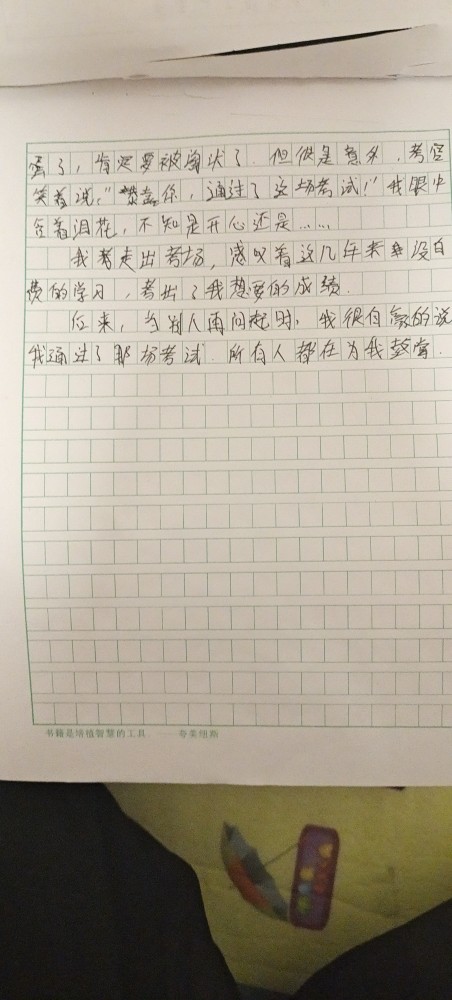 蛋了，肯定要被淘汰了．但很是意外，考官
笑着说，"恭喜你，通过了这场考试！"我眼中
含着泪花，不知是开心还是……
我走出考场，感叹着这几年来没白
费的学习，考出了我想要的成绩．
后来，当别人再问起时，我很自豪的说
我通过了那场考试．所有人都在为我鼓掌．
书籍是培植智慧的工具——夸美纽斯